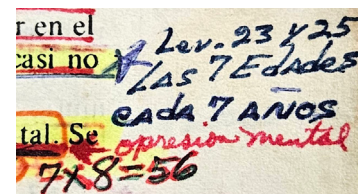 r en el
casi no
Lev. 23 y 25
Las 7 Edades
cada 7 años
tal. Se
opresion mental
7x8=56